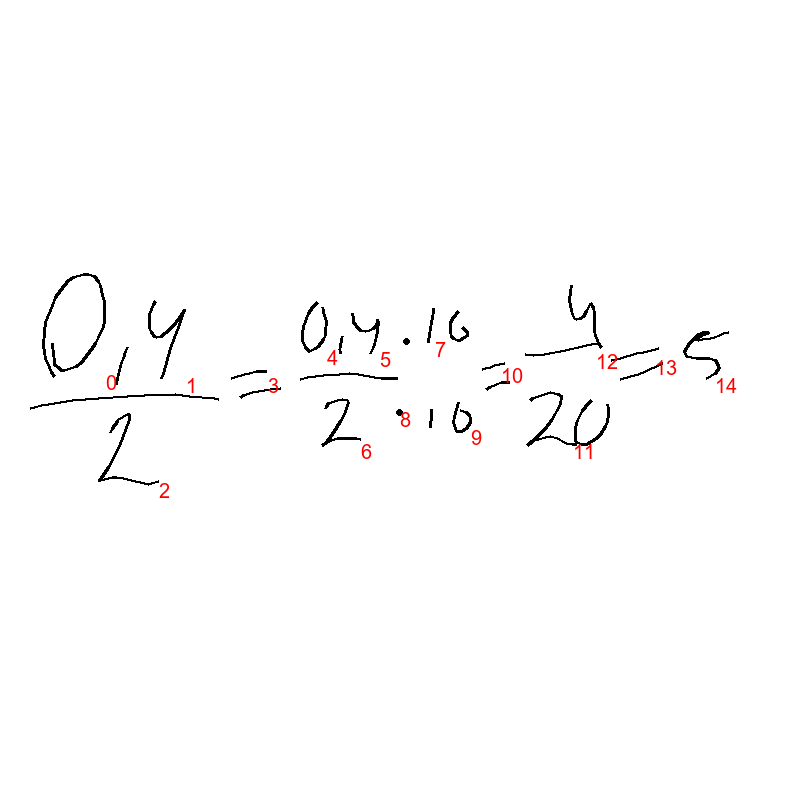 0,4/2 = 0,4·10/2·10 = 4/20 = 5
0 1 2 3 4 5 6 7 8 9 10 11 12 13 14